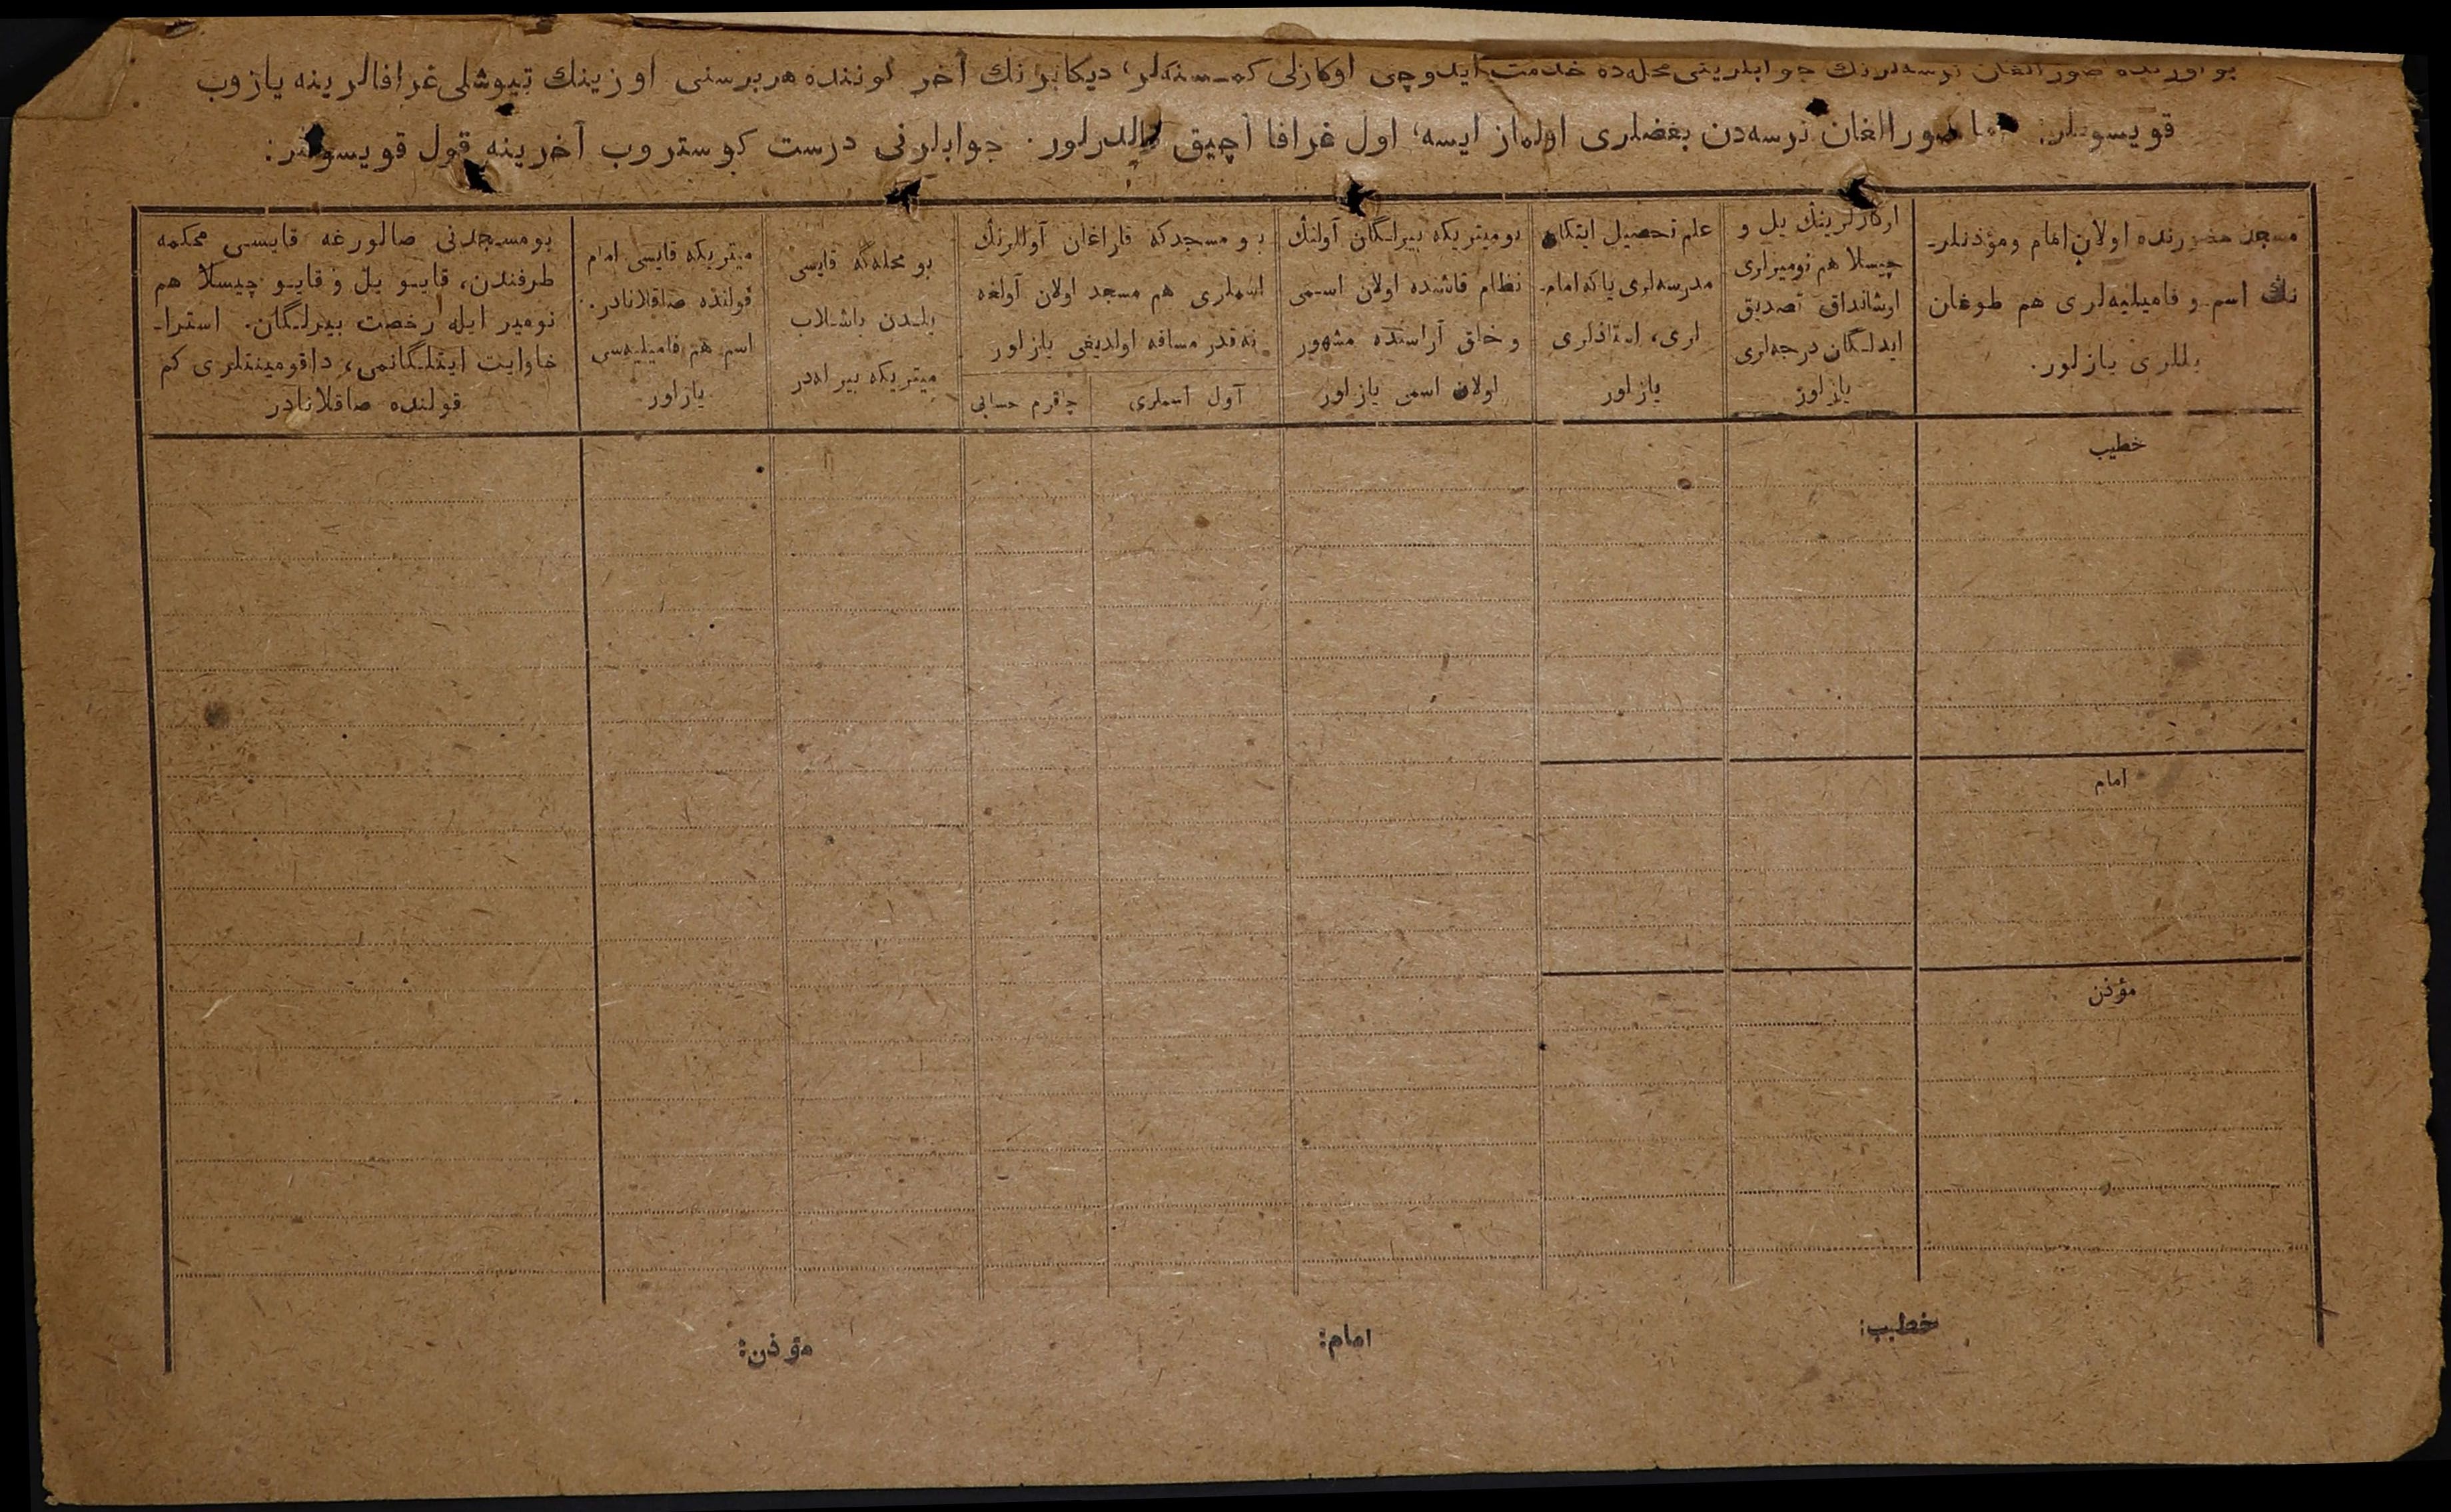 بو اورنده صورالغان نرسه‌لرنك جوابلرینی محله‌ده خدمت ایدوچی اوكازلی كمـسنه‌لر، دیكابرنك آخر كوننده هر برسنی اوزینك تیوشلی غرافالرینه یازوب
قویسونلر. اما صورالغان نرسه‌دن بعضلری اولماز ایسه، اول غرافا آچیق قالدرلور. جوابلرنی درست كوستروب آخرینه قول قویسونلر:
مسجد حضورنده اولان امام ومؤذنلرـ
نڭ اسم و فامیلیه‌لری هم طوغان
یللری یازلور.
اوكازلرینڭ یل و
چیسلا هم نومیرلری
ارشانداق تصدیق
ایدلـگان درجه‌لری
یازلور
علم تحصیل ایتكان
مدرسه‌لری یا كه امام‌ـ
لری، استاذلری
یازلور
بومیتریكه بیرلـگان آولنڭ
نظام قاشنده اولان اسـمی
و خلق آراسنده مشهور
اولان اسمی یازلور
بو مسجدكه قاراغان آوللرنڭ
اسملری هم مسجد اولان آولغه
نه قدر مسافه اولدیغی یازلور
آول اسملری
چاقرم حسابی
بو محله‌گه قایسی
یلـدن باشـلاب
میتریكه بیرله‌در
میتریكه قایسی امام
قولنده صاقلانادر.
اسم هم فامیلیه‌سی
یازلور
بومسـجدنی صالورغه قایسـی محكمه
طرفندن، قایـو یل و قایـو چیسلا هم
نومیر ایله رخصت بیرلـگان. استراـ
خاوایت ایتلـگانمی، داقومینتلری كم
قولنده صاقلانادر
خطیب
امام
مؤذن
خطیب:
امام:
مؤذن: